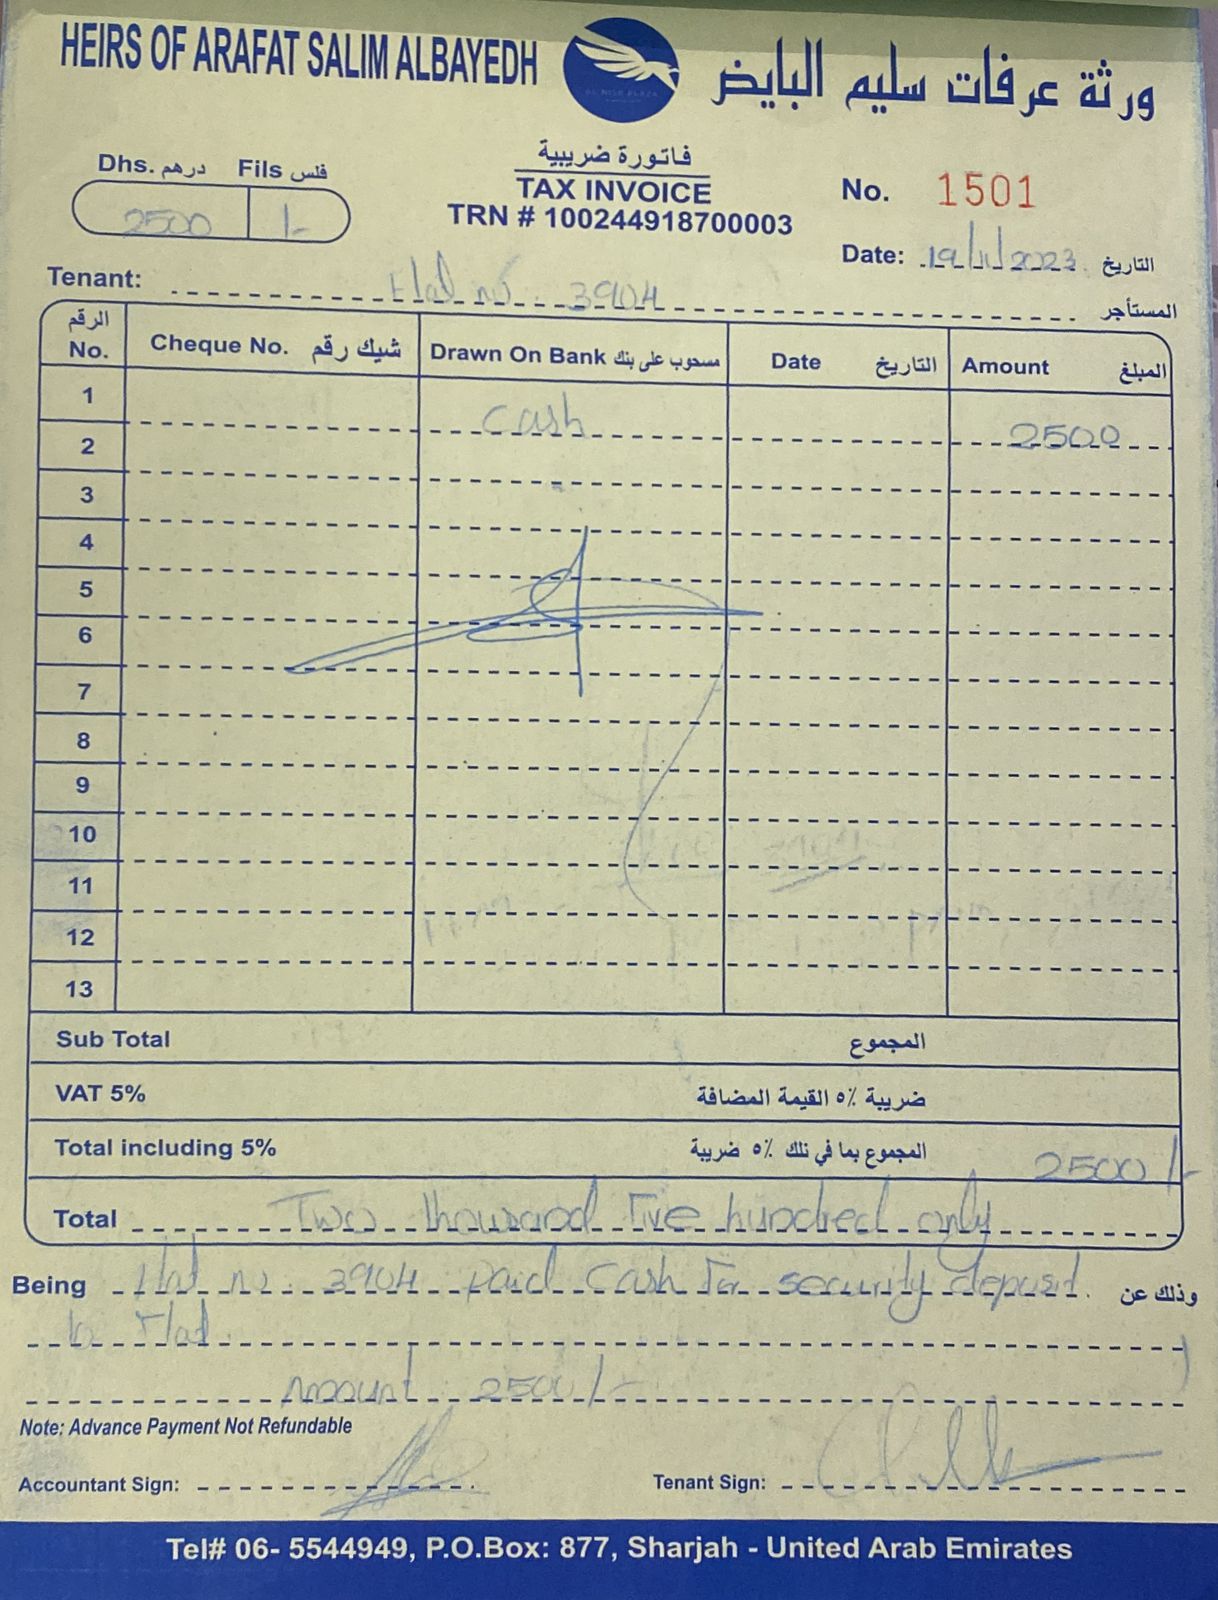 HEIRS OF ARAFAT SALIM ALBAYEDH
ورثة عرفات سليم البايض
فاتورة ضريبية
TAX INVOICE
TRN # 100244918700003
Dhs. درهم Fils فلس
2500 /-
No. 1501
Date: 19/11/2023 التاريخ
Tenant: Flat no. 3904 المستأجر
الرقم No. Cheque No. شيك رقم Drawn On Bank مسحوب على بنك Date التاريخ Amount المبلغ
1 cash 2500
2
3
4
5
6
7
8
9
10
11
12
13
Sub Total المجموع
VAT 5% ضريبة ٥٪ القيمة المضافة
Total including 5% المجموع بما في تلك ٥٪ ضريبة 2500/-
Total Two thousand Five hundred only
Being Flat no. 3904 paid cash for security deposit وذلك عن
to Flat
Amount 2500/-
Note: Advance Payment Not Refundable
Accountant Sign: Tenant Sign:
Tel# 06- 5544949, P.O.Box: 877, Sharjah - United Arab Emirates